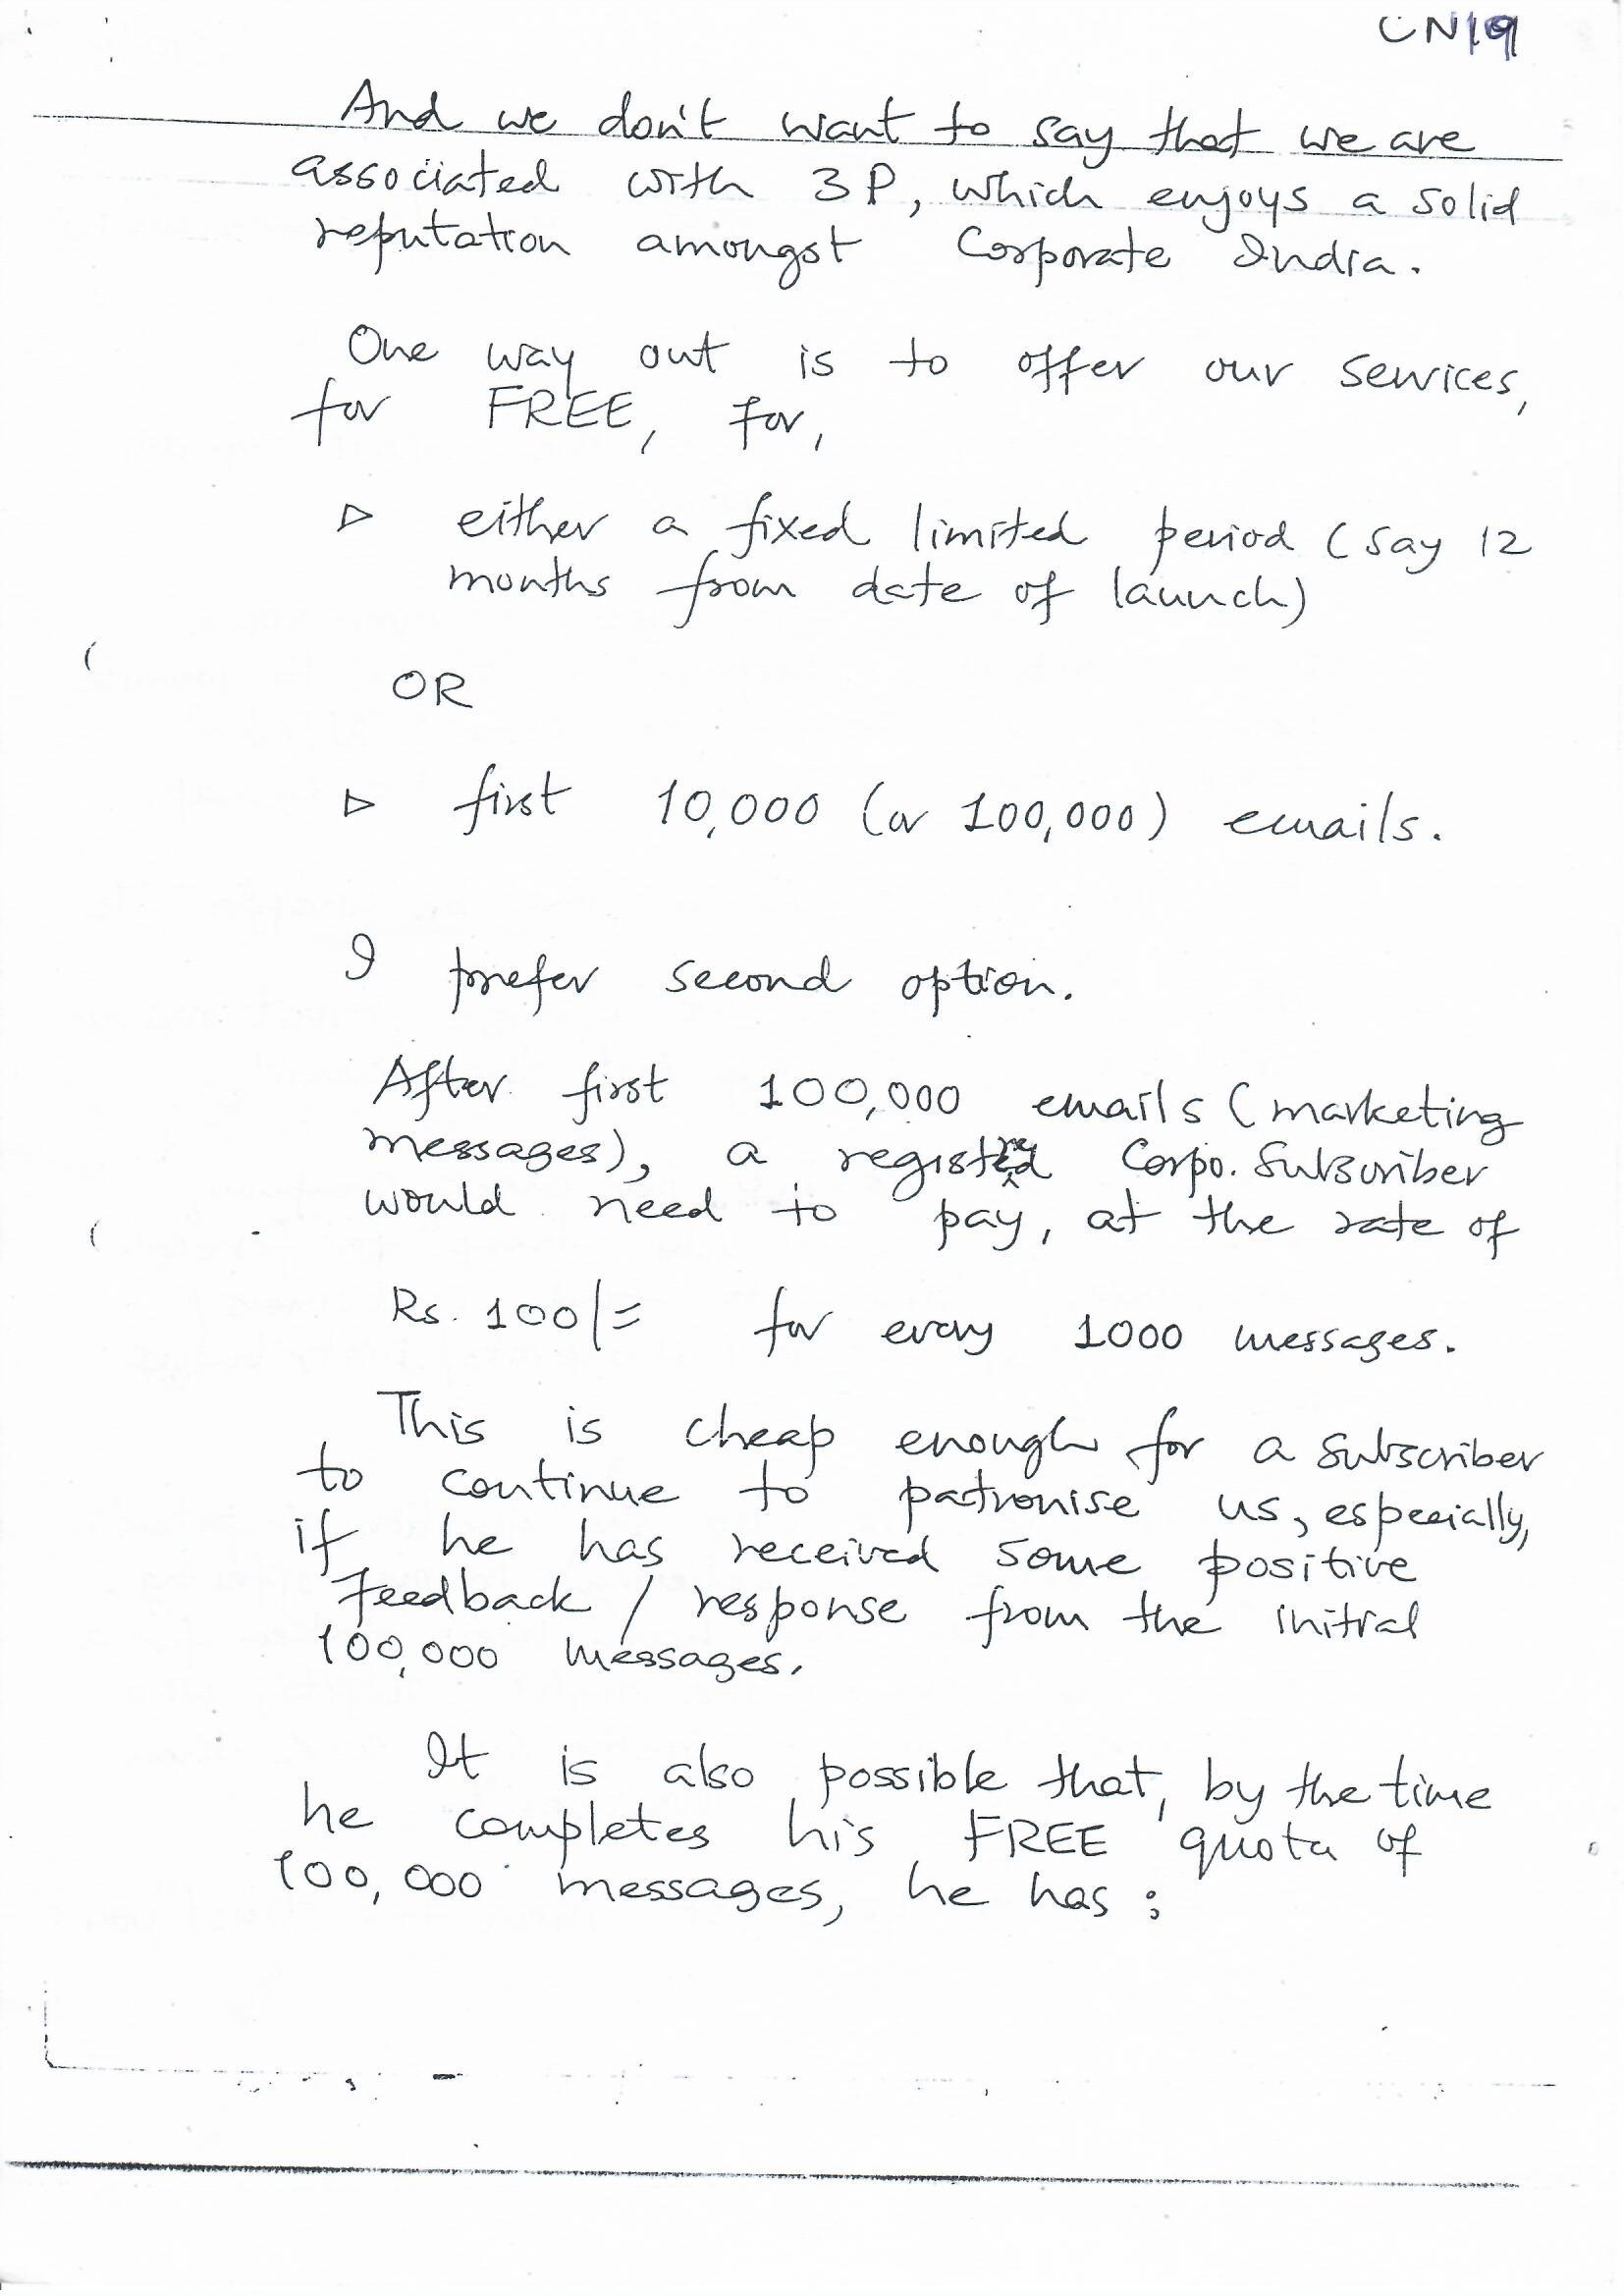 CN/19
And we don't want to say that we are
associated with 3P, which enjoys a solid
reputation amongst Corporate India.
One way out is to offer our services,
for FREE, for,
▷ either a fixed limited period (say 12
months from date of launch)
OR
▷ first 10,000 (or 100,000) emails.
I prefer second option.
After first 100,000 emails (marketing
messages), a registered Corpo. Subscriber
would need to pay, at the rate of
Rs. 100/= for every 1000 messages.
This is cheap enough for a subscriber
to continue to patronise us, especially,
if he has received some positive
feedback / response from the initial
100,000 messages.
It is also possible that, by the time
he completes his FREE quota of
100,000 messages, he has :